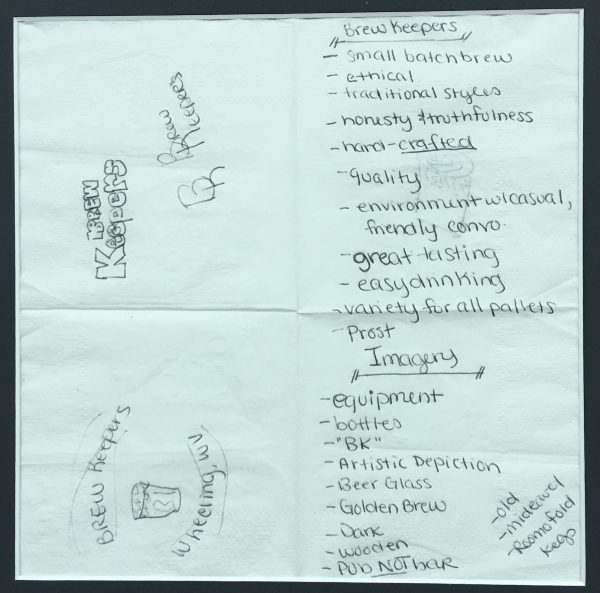 Brew Keepers
- small batch brew
- ethical
- traditional styles
- honesty & truthfulness
- hand-crafted
- quality
- environment w/casual,
friendly convo.
- great tasting
- easy drinking
- variety for all pallets
- Prost
Imagery
- equipment
- bottles
- "BK"
- Artistic Depiction
- Beer Glass
- Golden Brew
- Dark
- wooden
- Pub NOT bar
- old
- mideavel
- Room of old
kegs
Brew
Keepers
BK
BREW
Keepers
BREW Keepers
Wheeling, WV.